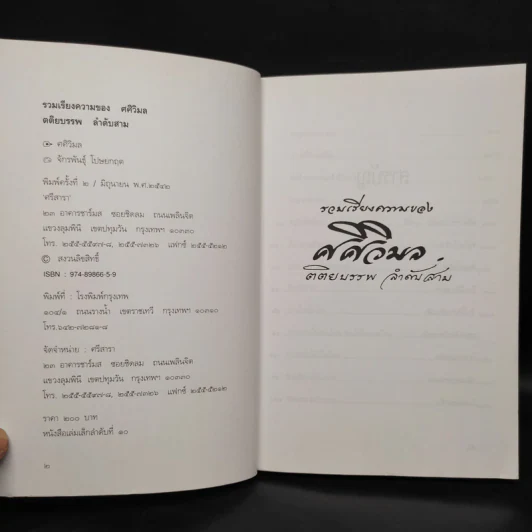 รวมเรียงความของ ศศิวิมล
ตติยบรรพ ลำดับสาม
ศศิวิมล
จักรพันธุ์ โปษยกฤต
พิมพ์ครั้งที่ ๒ / มิถุนายน พ.ศ.๒๕๔๒
'ศรีสารา'
๒๓ อาคารชาร์มส ซอยชิดลม ถนนเพลินจิต
แขวงลุมพินี เขตปทุมวัน กรุงเทพฯ ๑๐๓๓๐
โทร. ๒๕๕-๕๕๙๗-๘, ๒๕๕-๗๙๒๖ แฟกซ์ ๒๕๕-๕๒๑๒
© สงวนลิขสิทธิ์
ISBN : 974-89866-5-9
พิมพ์ที่ : โรงพิมพ์กรุงเทพ
๑๐๔/๑ ถนนรางน้ำ เขตราชเทวี กรุงเทพฯ ๑๐๓๑๐
โทร.๖๔๒-๗๒๘๑-๘
จัดจำหน่าย : ศรีสารา
๒๓ อาคารชาร์มส ซอยชิดลม ถนนเพลินจิต
แขวงลุมพินี เขตปทุมวัน กรุงเทพฯ ๑๐๓๓๐
โทร. ๒๕๕-๕๕๙๗-๘, ๒๕๕-๗๙๒๖ แฟกซ์ ๒๕๕-๕๒๑๒
ราคา ๒๐๐ บาท
หนังสือเล่มเล็กลำดับที่ ๑๐
๒
รวมเรียงความของ
ศศิวิมล
ตติยบรรพ ลำดับสาม